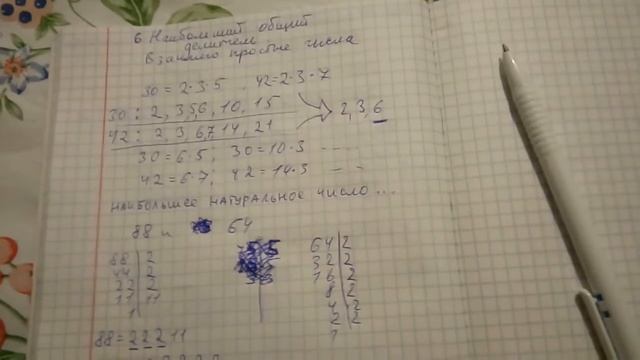 6. Наибольший общий
делитель
Взаимно простые числа
30 = 2·3·5 42 = 2·3·7
30 : 2, 3, 5, 6, 10, 15
42 : 2, 3, 6, 7, 14, 21
2, 3, 6
30 = 6·5; 30 = 10·3 - - - -
42 = 6·7; 42 = 14·3 - -
НАИБОЛЬШЕЕ НАТУРАЛЬНОЕ ЧИСЛО ...
88 и 64
88 | 2
44 | 2
22 | 2
11 | 11
1
64 | 2
32 | 2
16 | 2
8 | 2
4 | 2
2 | 2
1
88 = 2 2 2 11